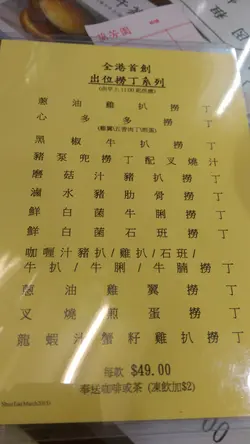 全港首創
出位撈丁系列
蔥油雞扒撈丁
心多多撈丁
黑椒牛扒撈丁
豬泵兜撈丁配叉燒汁
磨菇汁豬扒撈丁
滷水豬肋骨撈丁
鮮白菌牛脷撈丁
鮮白菌石班撈丁
咖喱汁豬扒/雞扒/石班/
牛扒/牛脷/牛腩撈丁
蔥油雞翼撈丁
叉燒煎蛋撈丁
龍蝦汁蟹籽雞扒撈丁
每款 $49.00
奉送咖啡或茶 (凍飲加$2)